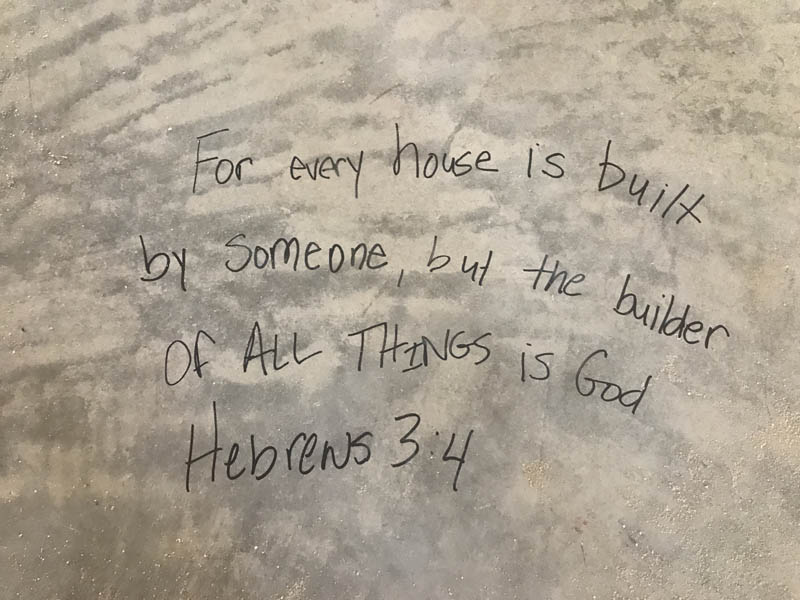 For every house is built
by someone, but the builder
of ALL THINGS is God
Hebrews 3:4